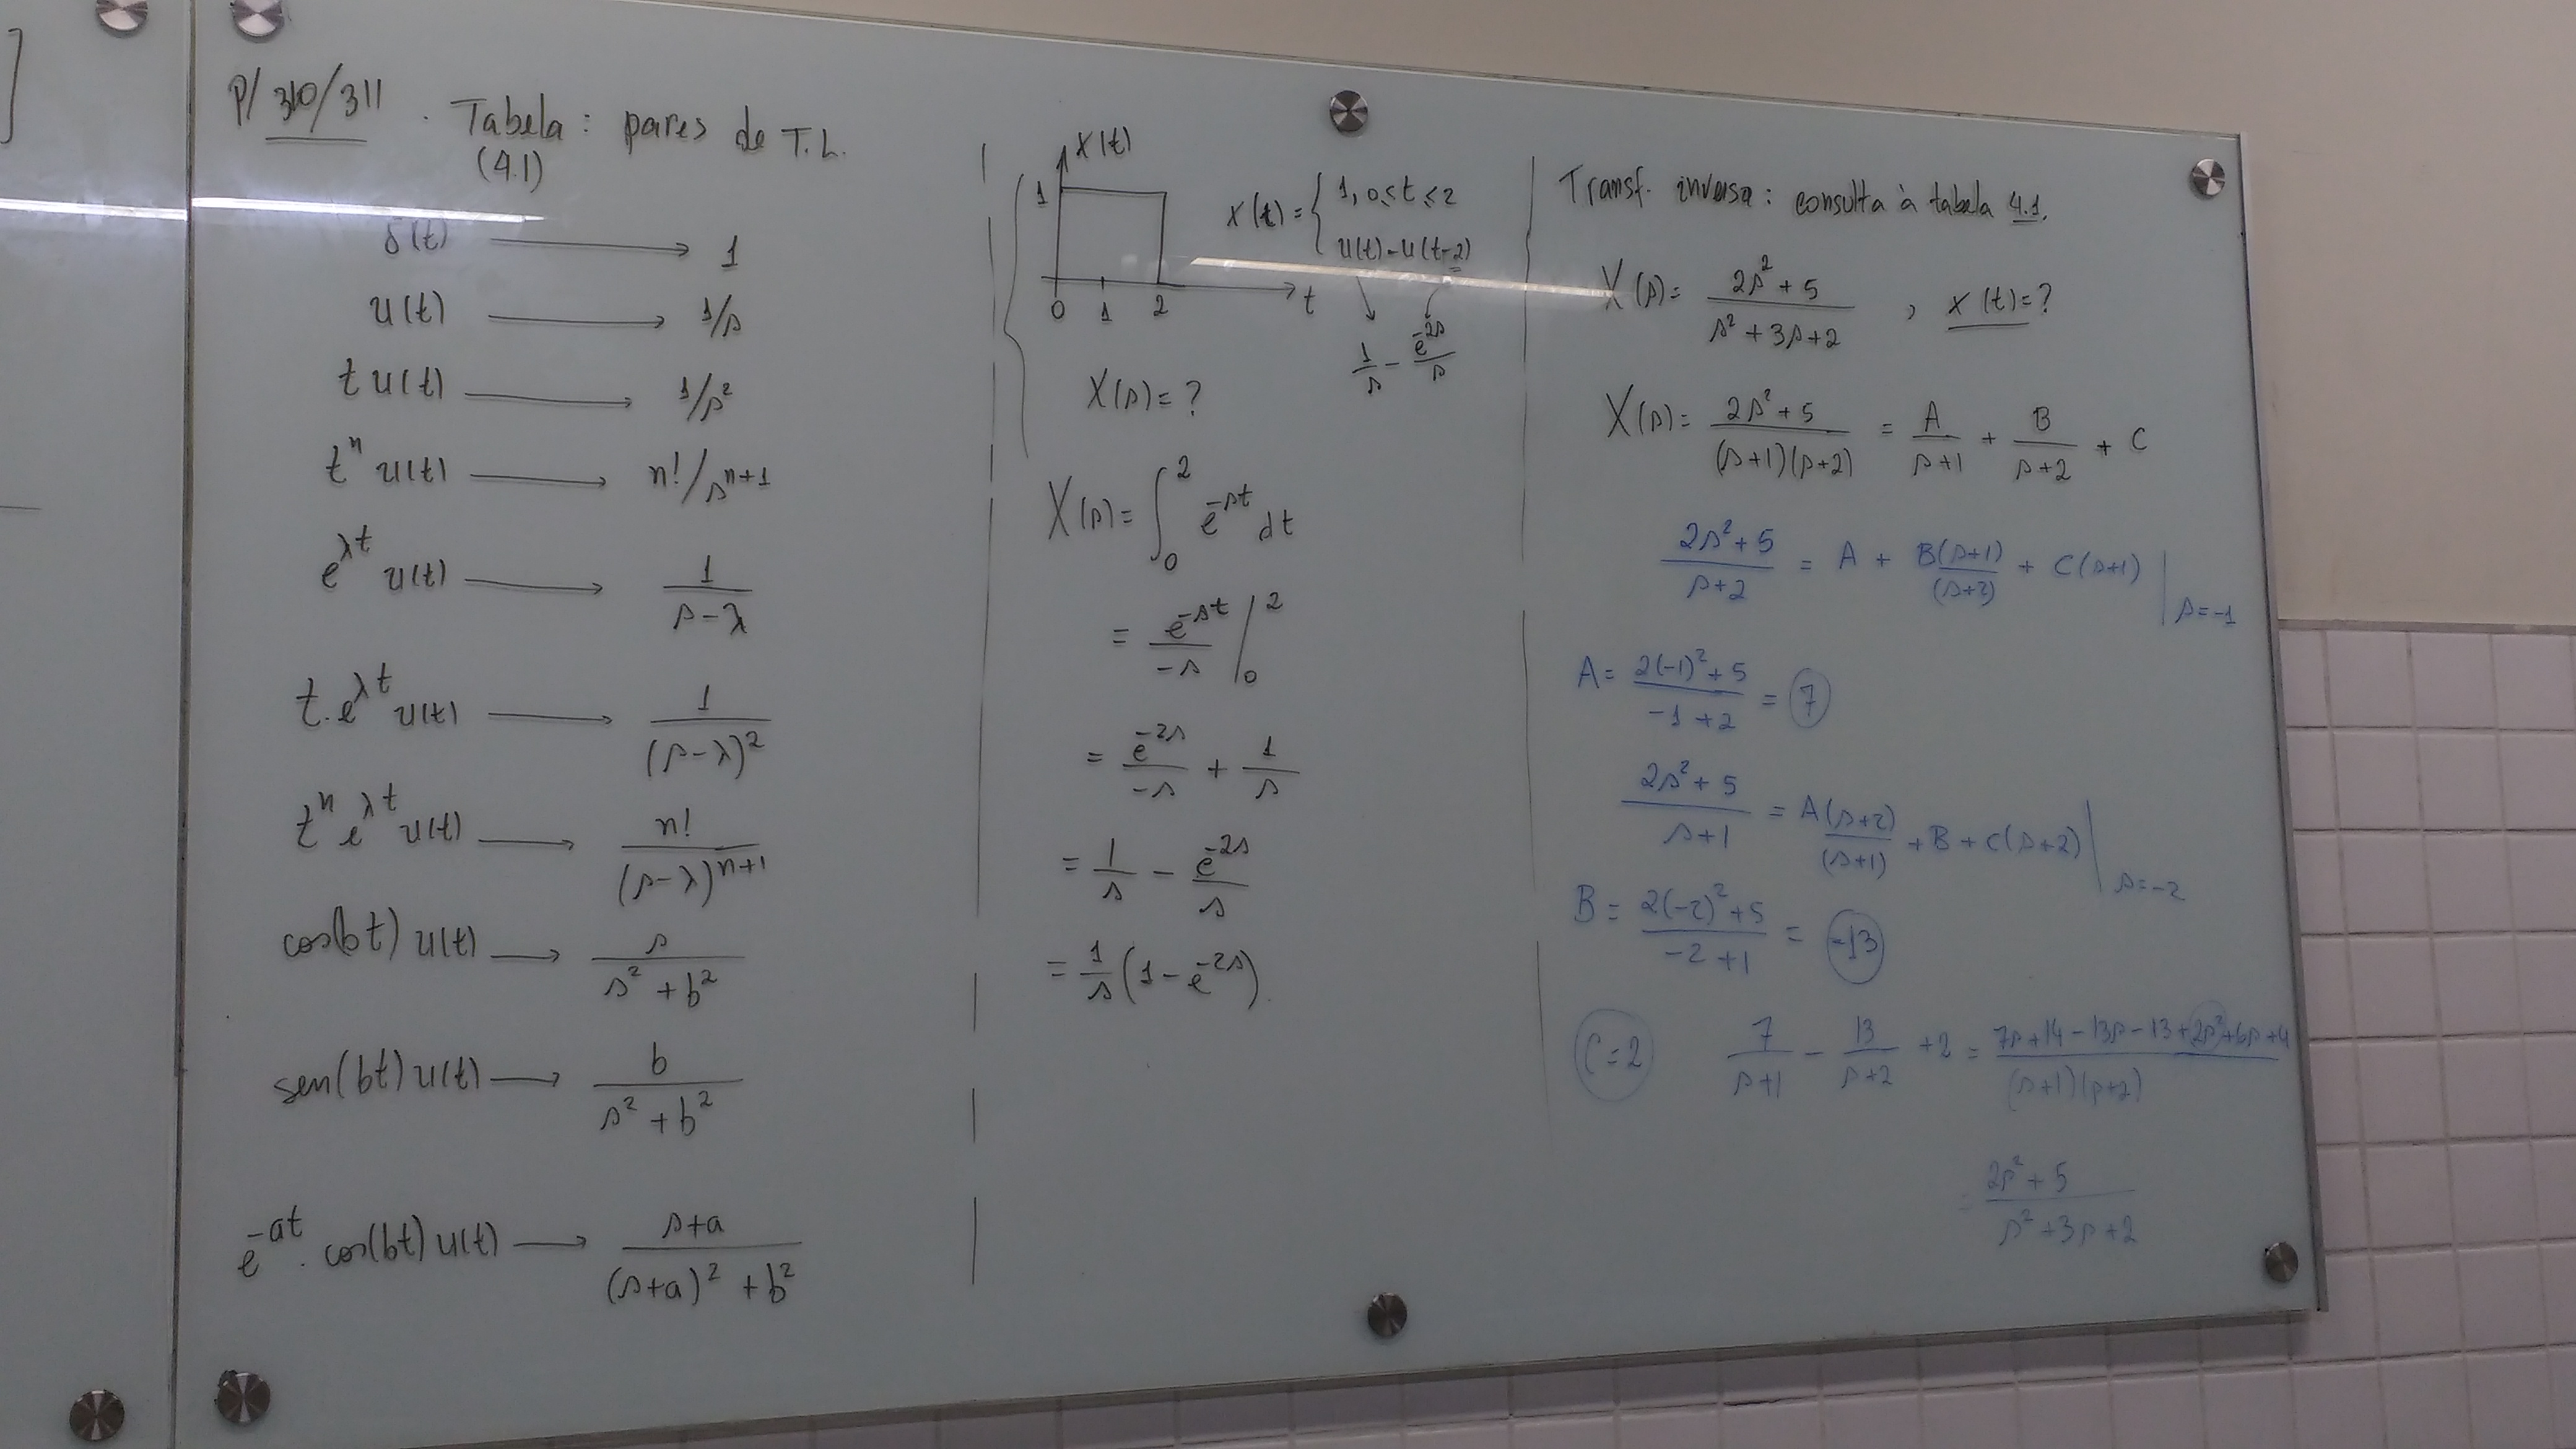 ]
P/ 310/311 . Tabela: pares de T.L.
(4.1)
δ(t) ⟶ 1
u(t) ⟶ 1/s
t u(t) ⟶ 1/s²
tⁿ u(t) ⟶ n!/sⁿ⁺¹
e^λt u(t) ⟶ 1/(s-λ)
t.e^λt u(t) ⟶ 1/(s-λ)²
tⁿ e^λt u(t) ⟶ n!/(s-λ)ⁿ⁺¹
cos(bt) u(t) ⟶ s/(s²+b²)
sen(bt) u(t) ⟶ b/(s²+b²)
e^-at . cos(bt) u(t) ⟶ (s+a)/((s+a)²+b²)
x(t)
1
0 1 2 t
x(t) = { 1, 0≤t≤2
u(t)-u(t-2)
1/s - e^-2s/s
X(s)= ?
X(s)= ∫₀² e^-st dt
= e^-st/-s |₀²
= e^-2s/-s + 1/s
= 1/s - e^-2s/s
= 1/s (1-e^-2s).
Transf. inversa: consulta à tabela 4.1.
X(s)= (2s²+5)/(s²+3s+2) , x(t)=?
X(s)= (2s²+5)/((s+1)(s+2)) = A/(s+1) + B/(s+2) + C
(2s²+5)/(s+2) = A + B(s+1)/(s+2) + C(s+1) | s=-1
A= (2(-1)²+5)/(-1+2) = 7
(2s²+5)/(s+1) = A(s+2)/(s+1) + B + C(s+2) | s=-2
B= (2(-2)²+5)/(-2+1) = -13
C=2 7/(s+1) - 13/(s+2) +2 = (7s+14-13s-13+2s²+6s+4)/((s+1)(s+2))
(2s²+5)/(s²+3s+2)